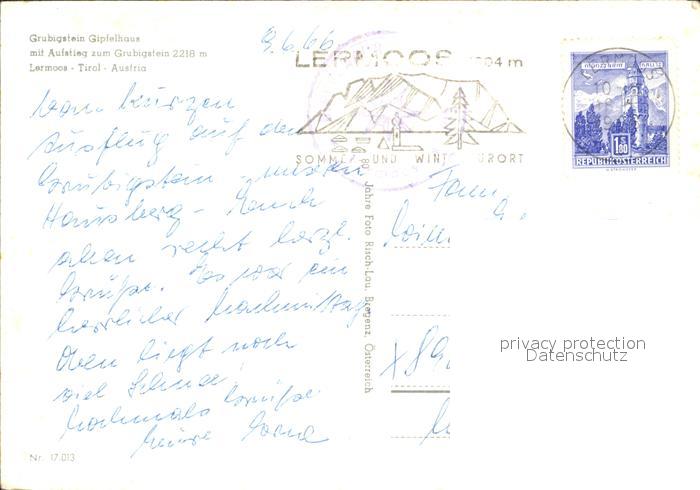 Grubigstein Gipfelhaus
mit Aufstieg zum Grubigstein 2218 m
Lermoos - Tirol - Austria
9.6.66
LERMOOS
SOMMER UND WINTERKURORT
MÜNZTURM HALL I.T.
1.80
REPUBLIK ÖSTERREICH
Vom kurzen
Ausflug auf den
Grubigstein - unseren
Hausberg - Euch
allen recht herzl.
Grüße. Es war ein
herrlicher Nachmittag.
Oben liegt noch
viel Schnee!
Nochmals Grüße
Eure
Fam.
80 Jahre Foto Risch-Lau, Bregenz, Österreich
privacy protection
Datenschutz
Nr. 17.013